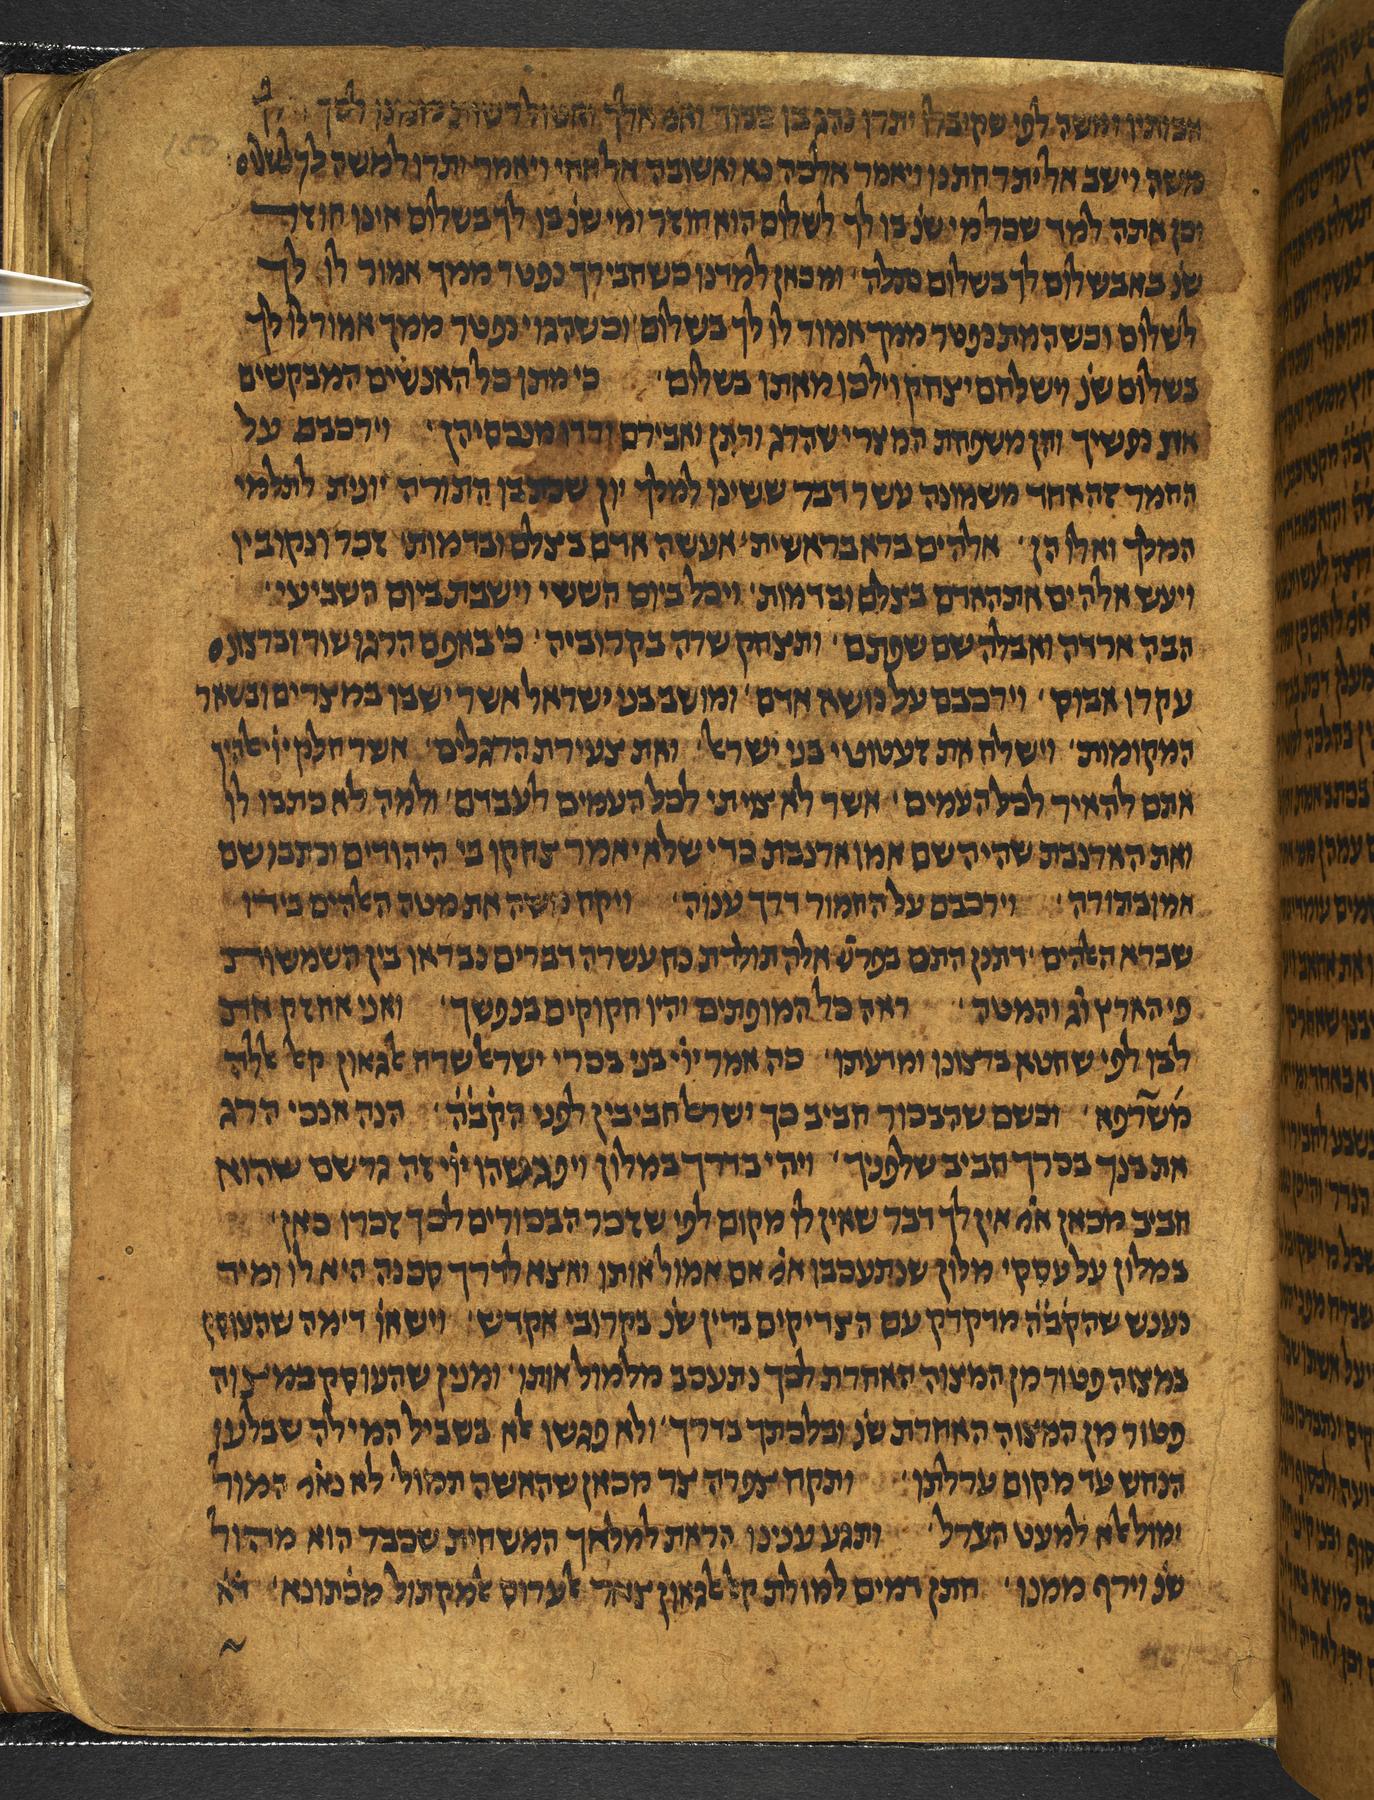 אבותינו ומשה לפי שקיבלו יתרו נהג בו כבוד ואמ אלך ואטול רשות ממנו לכך
משה וישב אל יתר חתנו ויאמר אלכה נא ואשובה אל אחי ויאמר יתרו למשה לך לשלום
וכן אתה למד שכל מי שנ בו לך לשלום הוא חוזר ומי שנ בו לך בשלום אינו חוזר
שנ באבשלום לך בשלום נתלה ׳ ומכאן למדנו כשחבירך נפטר ממך אמור לו לך
לשלום וכשהמת נפטר ממך אמור לו לך בשלום וכשהגוי נפטר ממך אמור לו לך
בשלום שנ וישלחם יצחק וילכו מאתו בשלום ׳ כי מתו כל האנשים המבקשים
את נפשיך והן משפחת המצרי שהרג ודתן ואבירם וירדו מנכסיהן ׳ וירכבם על
החמר זה אחד משמונה עשר דבר ששינו למלך יון שכתבו התורה יונית לתלמי
המלך ואלו הן ׳ אלהים ברא בראשית ׳ אעשה אדם בצלם ובדמות ׳ זכר ונקוביו
ויעש אלהים את האדם בצלם ובדמות ׳ ויכל ביום הששי וישבת ביום השביעי ׳
הבה ארדה ואבלה שם שפתם ׳ ותצחק שרה בקרוביה ׳ כי באפם הרגו שור וברצונם
עקרו אבוס ׳ וירכבם על נושא אדם ׳ ומושב בני ישראל אשר ישבו במצרים ובשאר
המקומות ׳ וישלח את זעטוטי בני ישראל ׳ ואת צעירת הרגלים ׳ אשר חלק ייי אלהיך
אתם להאיר לכל העמים ׳ אשר לא צויתי לכל העמים לעבדם ׳ ולמה לא כתבו לו
ואת הארנבת שהיה שם אמו ארנבת כדי שלא יאמר צחקו בי היהודים וכתבו שם
אמו בתורה ׳ וירכבם על החמור דרך ענוה ׳ ויקח משה את מטה האלהים בידו
שברא האלהים ׳ דתנן התם בפרש אלה תולדת כח עשרה דברים נבראו בין השמשות
פי הארץ וג והמטה ׳ ראה כל המופתים יהיו חקוקים בנפשך ׳ ואני אחזק את
לבו לפי שחטא ברצונו ומדעתו ׳ כה אמר ייי בני בכרי ישראל
וכשם שהבכור חביב כך ישראל חביבין לפני הקבה ׳ הנה אנכי הרג
את בנך בכרך חביב שלפניך ׳ ויהי בדרך במלון ויפגשהו ייי זה גרשם שהוא
חביב מכאן אמ אין לך דבר שאין לו מקום לפי שזכר הבכורים לכך זכרו כאן ׳
במלון על עסקי מלון שנתעכבו אמ אם אמול אותו ואצא לדרך סכנה היא לו ומיד
נענש שהקבה מדקדק עם הצדיקים בדין שנ בקרובי אקדש ׳ דימה שהעוסק
במצוה פטור מן המצוה האחרת לכך נתעכב מלמול אותו ׳ ומנין שהעוסק במצוה
פטור מן המצוה האחרת שנ ובלכתך בדרך ׳ ולא פגשו אלא בשביל המילה שבלעו
הנחש עד מקום ערלתו ׳ ותקח צפרה צר מכאן שהאשה תמול ׳ לא נאמ המול
ימול אלא למעט הערל ׳ ותגע ענינו הראת למלאך המשחית שכבר הוא מהול
שנ וירף ממנו ׳ חתן דמים למולת